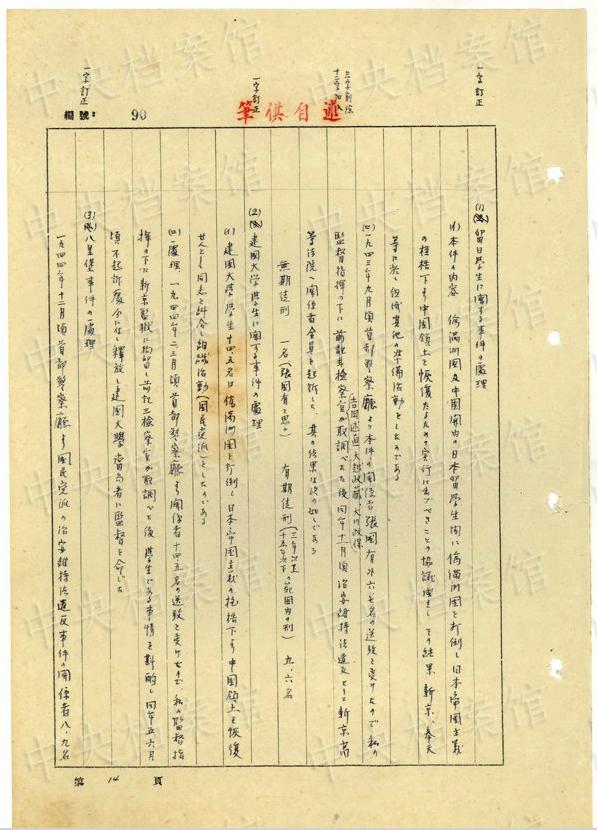 述自供筆
編號：
90
一字訂正
三字削除
十二字加入
一字訂正
一字訂正
(1) 留日学生に関する事件の處理
(イ) 本件の内容 偽満洲国及中国関内の日本留学生間に偽満洲国を打倒し日本帝国主義
の桎梏下より中国領土を恢復するための実行に出づべきことの協議成立し その結果 新京、奉天
等に於て組織其他の準備活動をしたのである
(ロ) 一九四三年九月頃首都警察廳より本件の関係者張国有外六、七名の送致を受けたので私の
監督指揮の下に前記三検察官が取調べたる後 同年十一月頃治安維持法違反として新京高
等法院へ関係者全員を起訴した 其の結果は次の如くである
無期徒刑 一名（張国有と思ふ） 有期徒刑 九、六名
(2) 建国大学学生に関する事件の處理
(イ) 建国大学学生十四、五名は偽満洲国を打倒し日本帝国主義の桎梏下より中国領土を恢復
せんとし同志を糾合し組織活動（国民党派）をしたのである
(ロ) 處理 一九四四年二、三月頃首都警察廳より関係者十四、五名の送致を受けたので 私の監督指
揮の下に新京監獄に拘留し前記三検察官が取調べた後学生である事情を斟酌し同年五、六月
頃不起訴處分になし釈放し建国大学當局者に監督を命じた
(3) 八里堡事件の處理
一九四四年十二月頃首都警察廳より国民党派の治安維持法違反事件の関係者八、九名
第 14 頁
中央档案馆